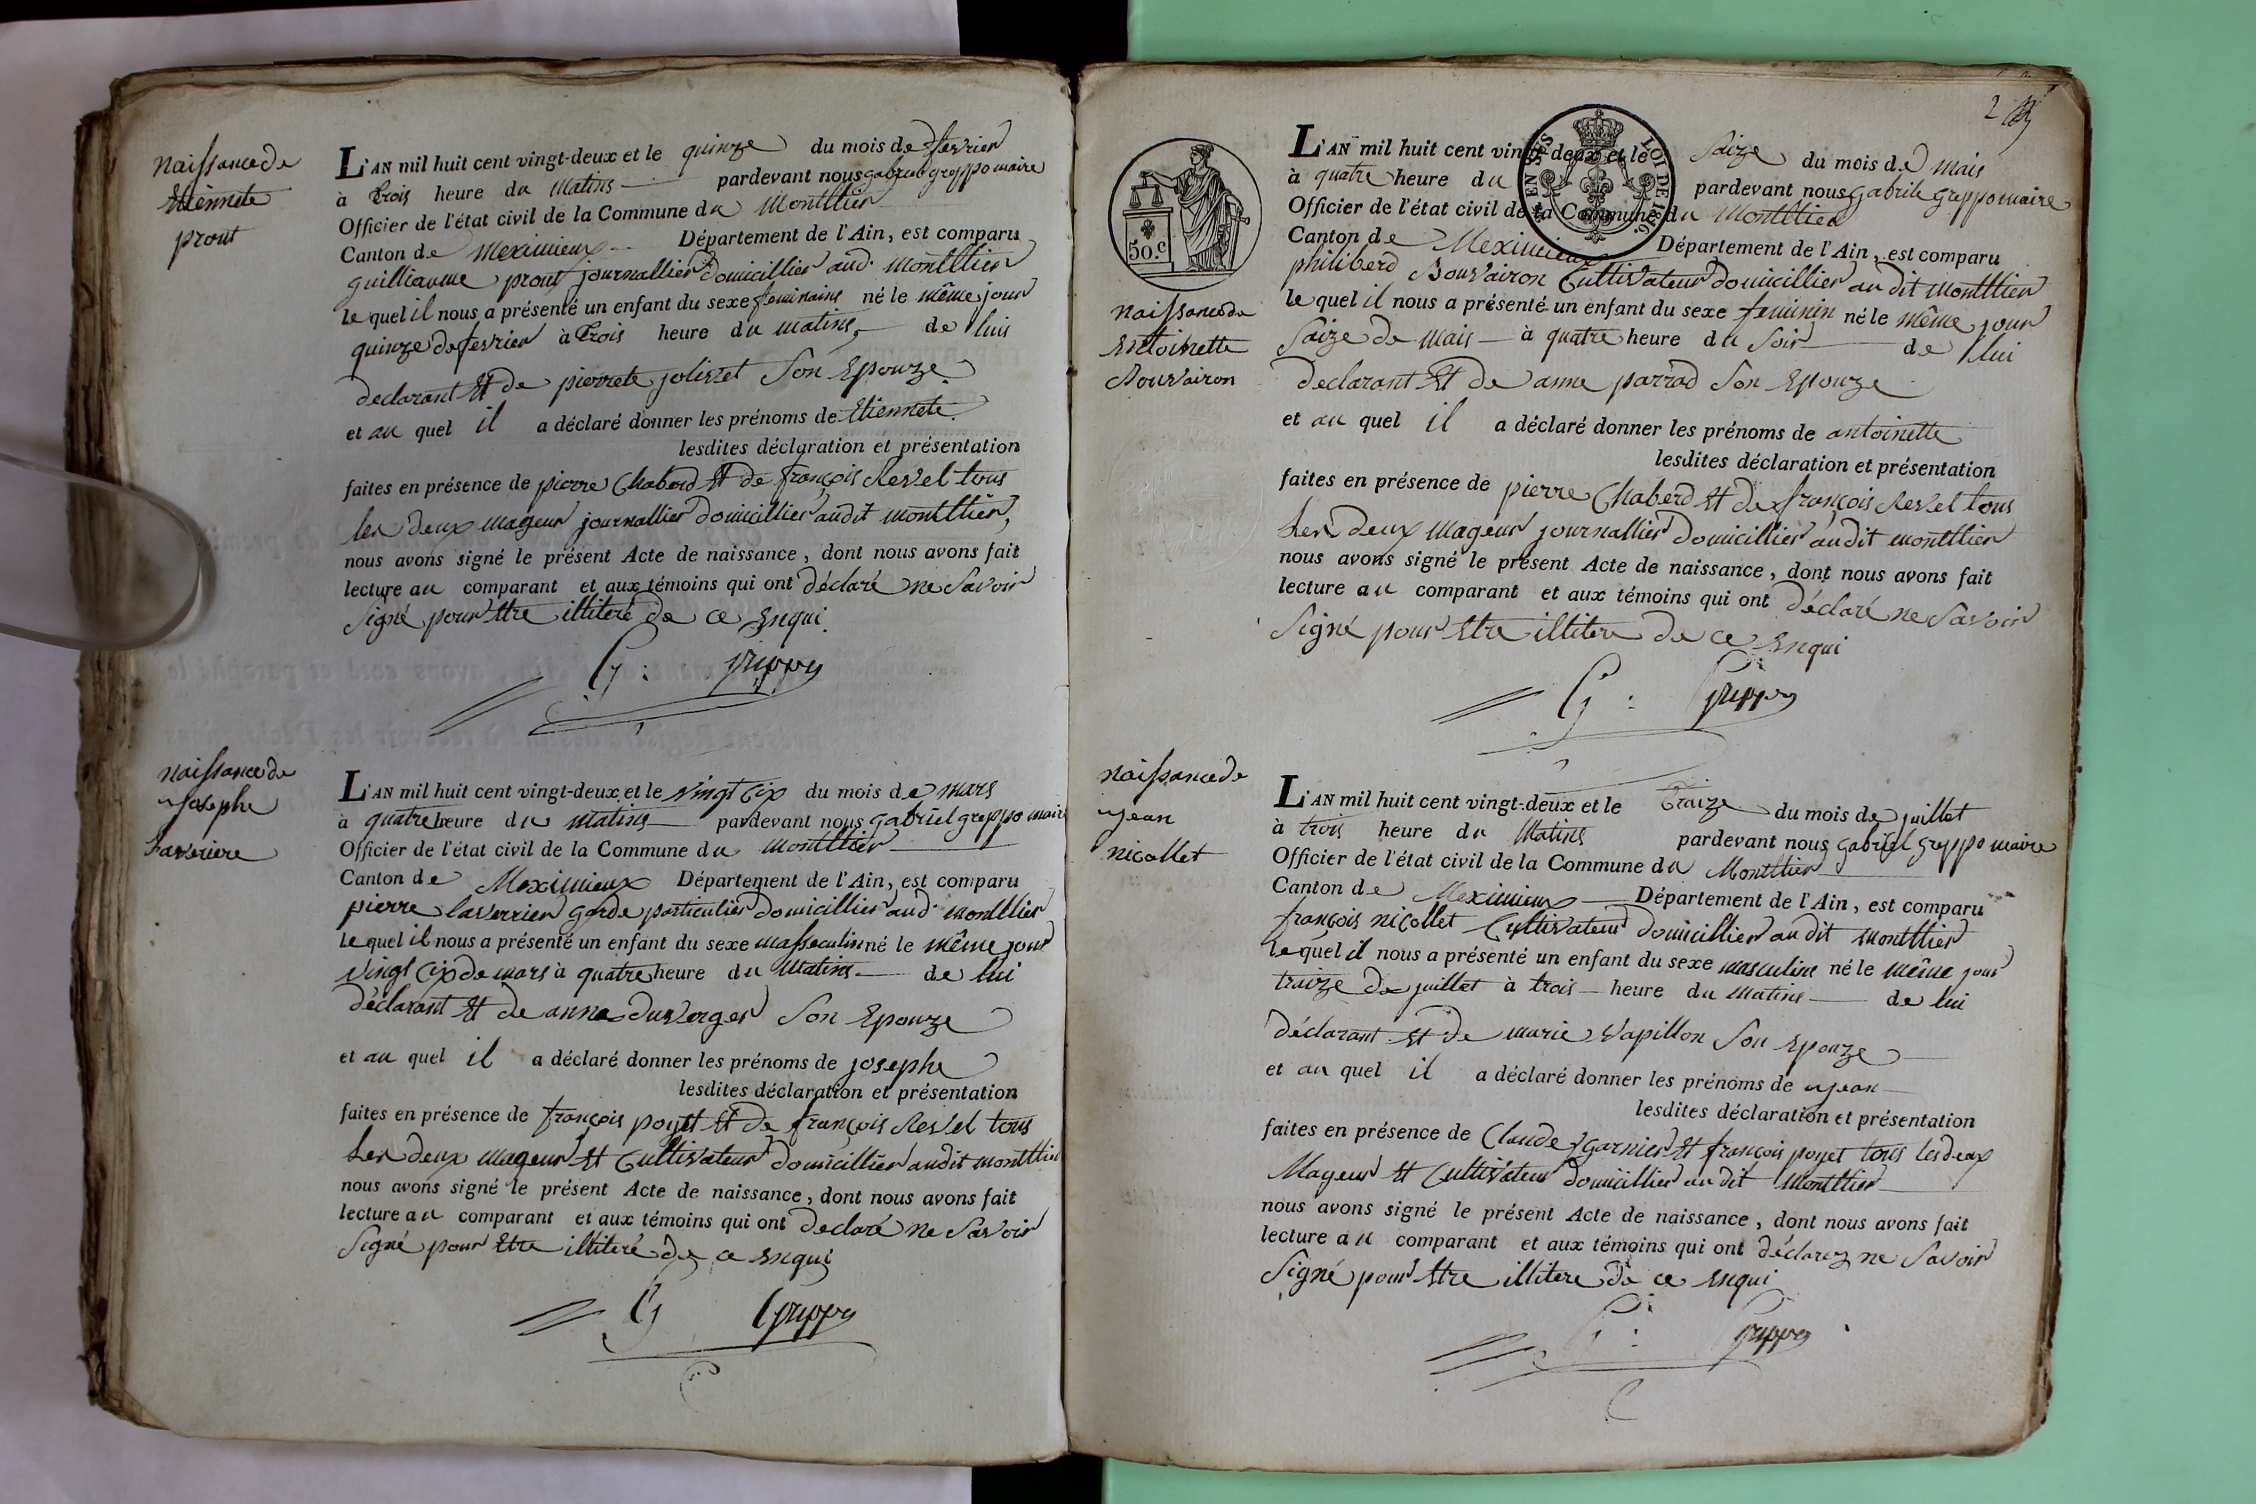 naissance de
Etiennete
prout
L'AN mil huit cent vingt-deux et le quinze du mois de fevrier
à trois heure du matins pardevant nous gabriel greppo maire
Officier de l'état civil de la Commune du Montllier
Canton de Meximieux Département de l'Ain, est comparu
guilliaume prout journallier domicillier aud. montllier
Lequel il nous a présenté un enfant du sexe feminains né le même jour
quinze de fevrier à trois heure du matins de luis
declarant Et de pierrete jolivet Son Epouze
et au quel il a déclaré donner les prénoms de Etiennete
lesdites déclaration et présentation
faites en présence de pierre Chaberd Et de françois Revel tous
les deux mageur journallier domicillier audit montllier,
nous avons signé le présent Acte de naissance, dont nous avons fait
lecture au comparant et aux témoins qui ont déclaré ne Savoir
Signé pour Etre illiteré de ce Enqui
G: Greppo
naissance de
Josephe
Laveriere
L'AN mil huit cent vingt-deux et le vingt cix du mois de mars
à quatre heure du matins pardevant nous gabriel greppo maire
Officier de l'état civil de la Commune du Montllier
Canton de Meximieux Département de l'Ain, est comparu
pierre laverrier garde particulier domicillier aud. montllier
Lequel il nous a présenté un enfant du sexe masseculin né le même jour
vingt cix de mars à quatre heure du matins de lui
déclarant Et de anne duverger Son Epouze
et au quel il a déclaré donner les prénoms de josephe
lesdites déclaration et présentation
faites en présence de françois poyet Et de françois Revel tous
Les deux mageur Et Cultivateur domicillier audit montllier
nous avons signé le présent Acte de naissance, dont nous avons fait
lecture au comparant et aux témoins qui ont declaré ne Savoir
Signé pour Etre illiteré de ce Enqui
G Greppo
2
50.c
EN SUS
LOI DE 1816.
naissance de
Antoinette
Bouvairon
L'AN mil huit cent vingt-deux et le Saize du mois de mais
à quatre heure du pardevant nous gabrile greppo maire
Officier de l'état civil de la Commune du Montllier
Canton de Meximieux Département de l'Ain, est comparu
philiberd Bouvairon Cultivateur domicillier au dit montllier
Le quel il nous a présenté un enfant du sexe feminin né le même jour
Saize de mais à quatre heure du Soir de lui
declarant Et de anne parrad Son Epouze
et au quel il a déclaré donner les prénoms de antoinette
lesdites déclaration et présentation
faites en présence de pierre Chaberd Et de françois Revel tous
Les deux mageur journallier domicillier au dit montllier
nous avons signé le présent Acte de naissance, dont nous avons fait
lecture au comparant et aux témoins qui ont déclaré ne Savoir
Signé pour Etre illitere de ce Enqui
G: Greppo
naissance de
Jean
nicollet
L'AN mil huit cent vingt-deux et le traize du mois de juillet
à trois heure du matins pardevant nous gabriel greppo maire
Officier de l'état civil de la Commune du Montllier
Canton de Meximieux Département de l'Ain, est comparu
françois nicollet Cultivateur domicillier au dit montllier
Lequel il nous a présenté un enfant du sexe masculine né le même jour
traize de juillet à trois heure du matins de lui
déclarant Et de marie vapillon Son Epouze
et au quel il a déclaré donner les prénoms de Jean
lesdites déclaration et présentation
faites en présence de Claude garnier Et françois poyet tous les deux
Mageur Et Cultivateur domicillier au dit montllier
nous avons signé le présent Acte de naissance, dont nous avons fait
lecture au comparant et aux témoins qui ont déclarez ne Savoir
Signé pour Etre illitere de ce Enqui
G: Greppo